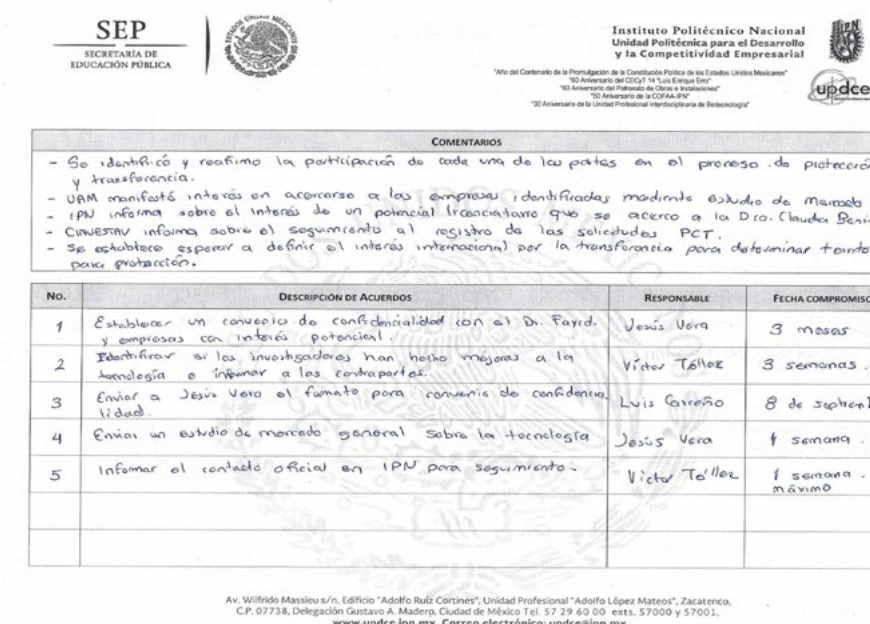 SEP
SECRETARÍA DE
EDUCACIÓN PÚBLICA
ESTADOS UNIDOS MEXICANOS
Instituto Politécnico Nacional
Unidad Politécnica para el Desarrollo
y la Competitividad Empresarial
IPN
"Año del Centenario de la Promulgación de la Constitución Política de los Estados Unidos Mexicanos"
"60 Aniversario del CECyT 14 "Luis Enrique Erro"
"60 Aniversario del Patronato de Obras e Instalaciones"
"50 Aniversario de la COFAA-IPN"
"30 Aniversario de la Unidad Profesional Interdisciplinaria de Biotecnología"
updce
COMENTARIOS
- Se identificó y reafimo la participación de cada una de las pates en el proceso de protección
y transferencia.
- UAM manifestó interés en acercarse a las empresas identificadas mediante estudio de Mercado
- IPN informa sobre el interés de un potencial licenciatario que se acerco a la Dra. Claudia
- CINVESTAV informa sobre el seguimiento al registro de las solicitudes PCT.
- Se establece esperar a definir el interés internacional por la transferencia para determinar
para protección.
No. DESCRIPCIÓN DE ACUERDOS RESPONSABLE FECHA COMPROMISO
1 Establecer un convenio de confidencialidad con el Dr. Farid. Jesús Vera 3 meses
y empresas con interés potencial.
2 Identificar si los investigadores han hecho mejoras a la Víctor Téllez 3 semanas.
tecnología e informar a las contrapartes.
3 Enviar a Jesús Vera el formato para convenio de confidencia Luis Carreño 8 de
lidad.
4 Enviar un estudio de mercado general sobre la tecnología Jesús Vera 1 semana.
5 Informar el contacto oficial en IPN para seguimiento. Víctor Téllez 1 semana.
máximo
Av. Wilfrido Massieu s/n, Edificio "Adolfo Ruiz Cortines", Unidad Profesional "Adolfo López Mateos", Zacatenco,
C.P. 07738, Delegación Gustavo A. Madero, Ciudad de México Tel. 57 29 60 00 exts. 57000 y 57001,
www.updce.ipn.mx, Correo electrónico: updce@ipn.mx